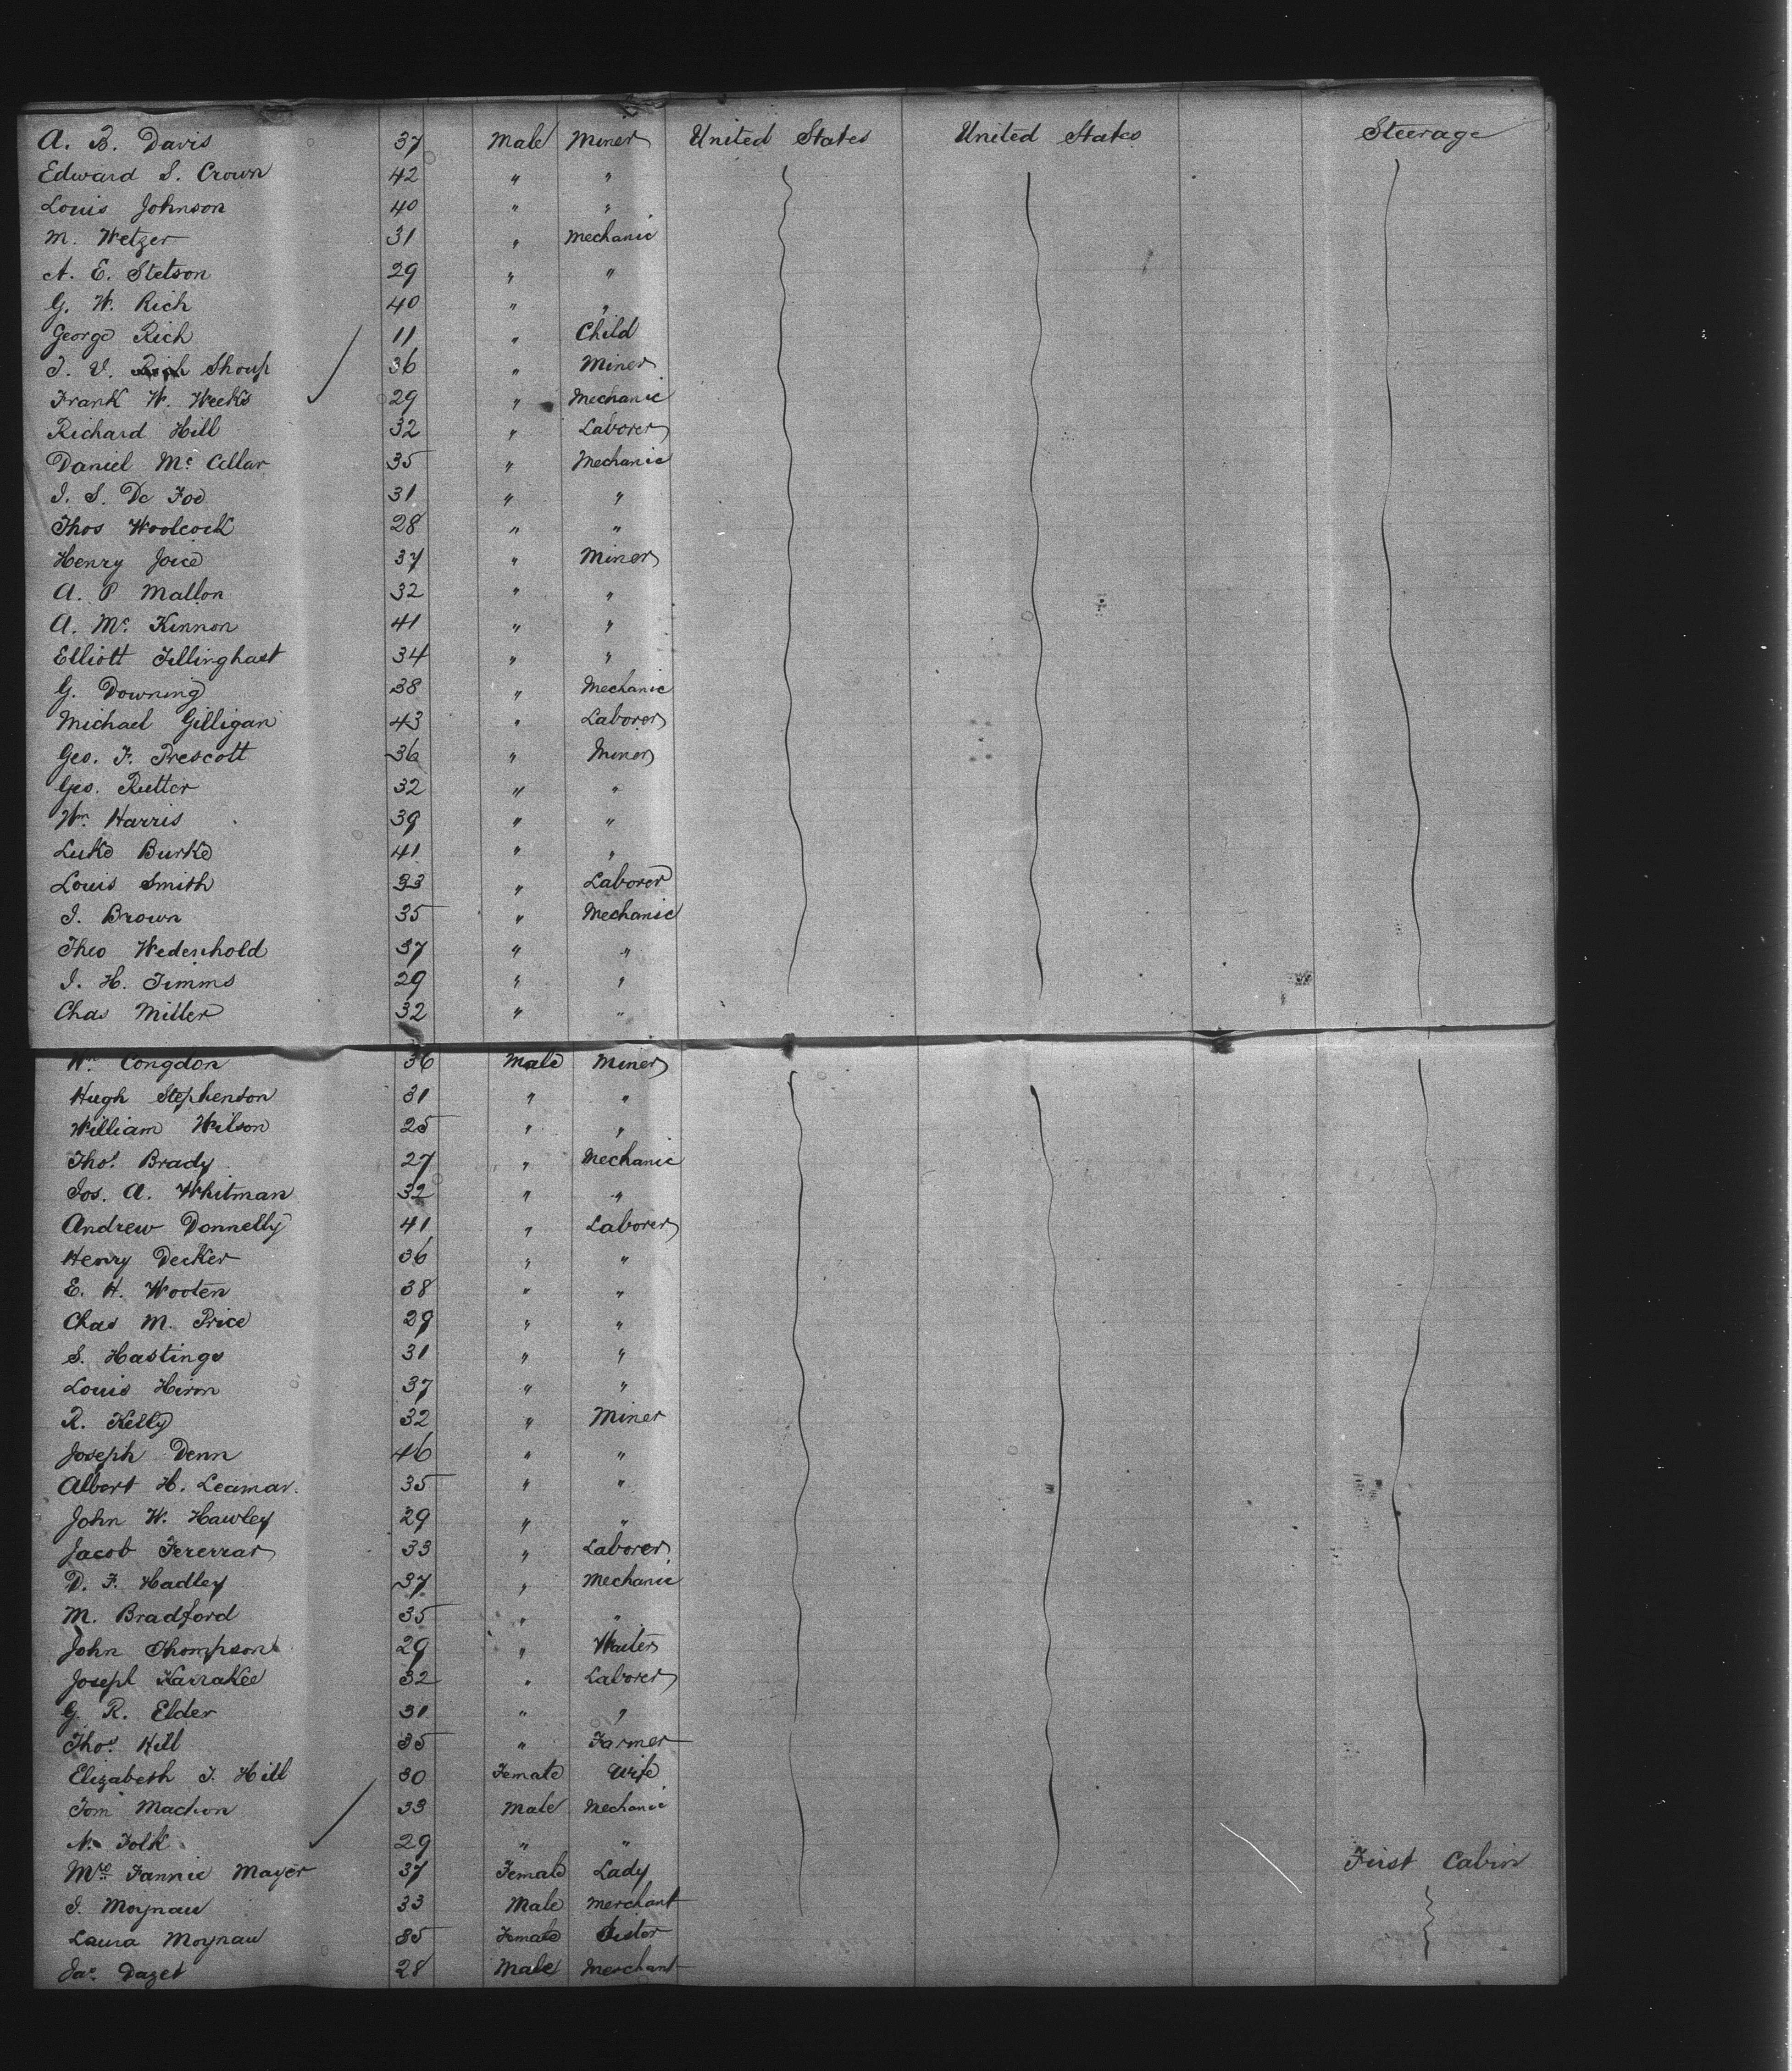 A. B. Davis 37 Male Miner United States United States Steerage
Edward S. Crown 42 " "
Louis Johnson 40 " "
M. Wetzer 31 " Mechanic
A. E. Stetson 29 " "
G. W. Rich 40 " "
George Rich 11 " Child
J. V. Shoup 36 " Miner
Frank W. Weeks 29 " Mechanic
Richard Hill 32 " Laborer
Daniel Mc Cellar 35 " Mechanic
I. S. De Foe 31 " "
Thos Woolcock 28 " "
Henry Joice 37 " Miner
A. P Mallon 32 " "
A. Mc Kinnon 41 " "
Elliott Tillinghast 34 " "
G. Downing 38 " Mechanic
Michael Gilligan 43 " Laborer
Geo. F. Prescott 36 " Miner
Geo. Rutter 32 " "
Wm. Harris 39 " "
Luke Burke 41 " "
Louis Smith 33 " Laborer
I. Brown 35 " Mechanic
Theo Wedenhold 37 " "
I. H. Timms 29 " "
Chas Miller 32 " "
Wm. Congdon 36 Male Miner
Hugh Stephenson 31 " "
William Wilson 25 " "
Thos. Brady 27 " Mechanic
Jos. A. Whitman 32 " "
Andrew Donnelly 41 " Laborer
Henry Decker 36 " "
E. H. Wooten 38 " "
Chas M. Price 29 " "
S. Hastings 31 " "
Louis Hiron 37 " "
R. Kelly 32 " Miner
Joseph Denn 46 " "
Albert H. Leamar. 35 " "
John W. Hawley 29 " "
Jacob Fererrar 33 " Laborer
D. F. Hadley 37 " Mechanic
M. Bradford 35 " "
John Thompson 29 " Waiter
Joseph Karrakee 32 " Laborer
G. R. Elder 31 " "
Thos. Hill 35 " Farmer
Elizabeth J. Hill 30 Female Wife
Tom 33 Male Mechanic
N. Folk 29 " "
Mrs. Fannie Mayer 37 Female Lady First Cabin
I. Moynau 33 Male Merchant
Laura Moynau 35 Female Sister
Jas. Dazet 28 Male Merchant